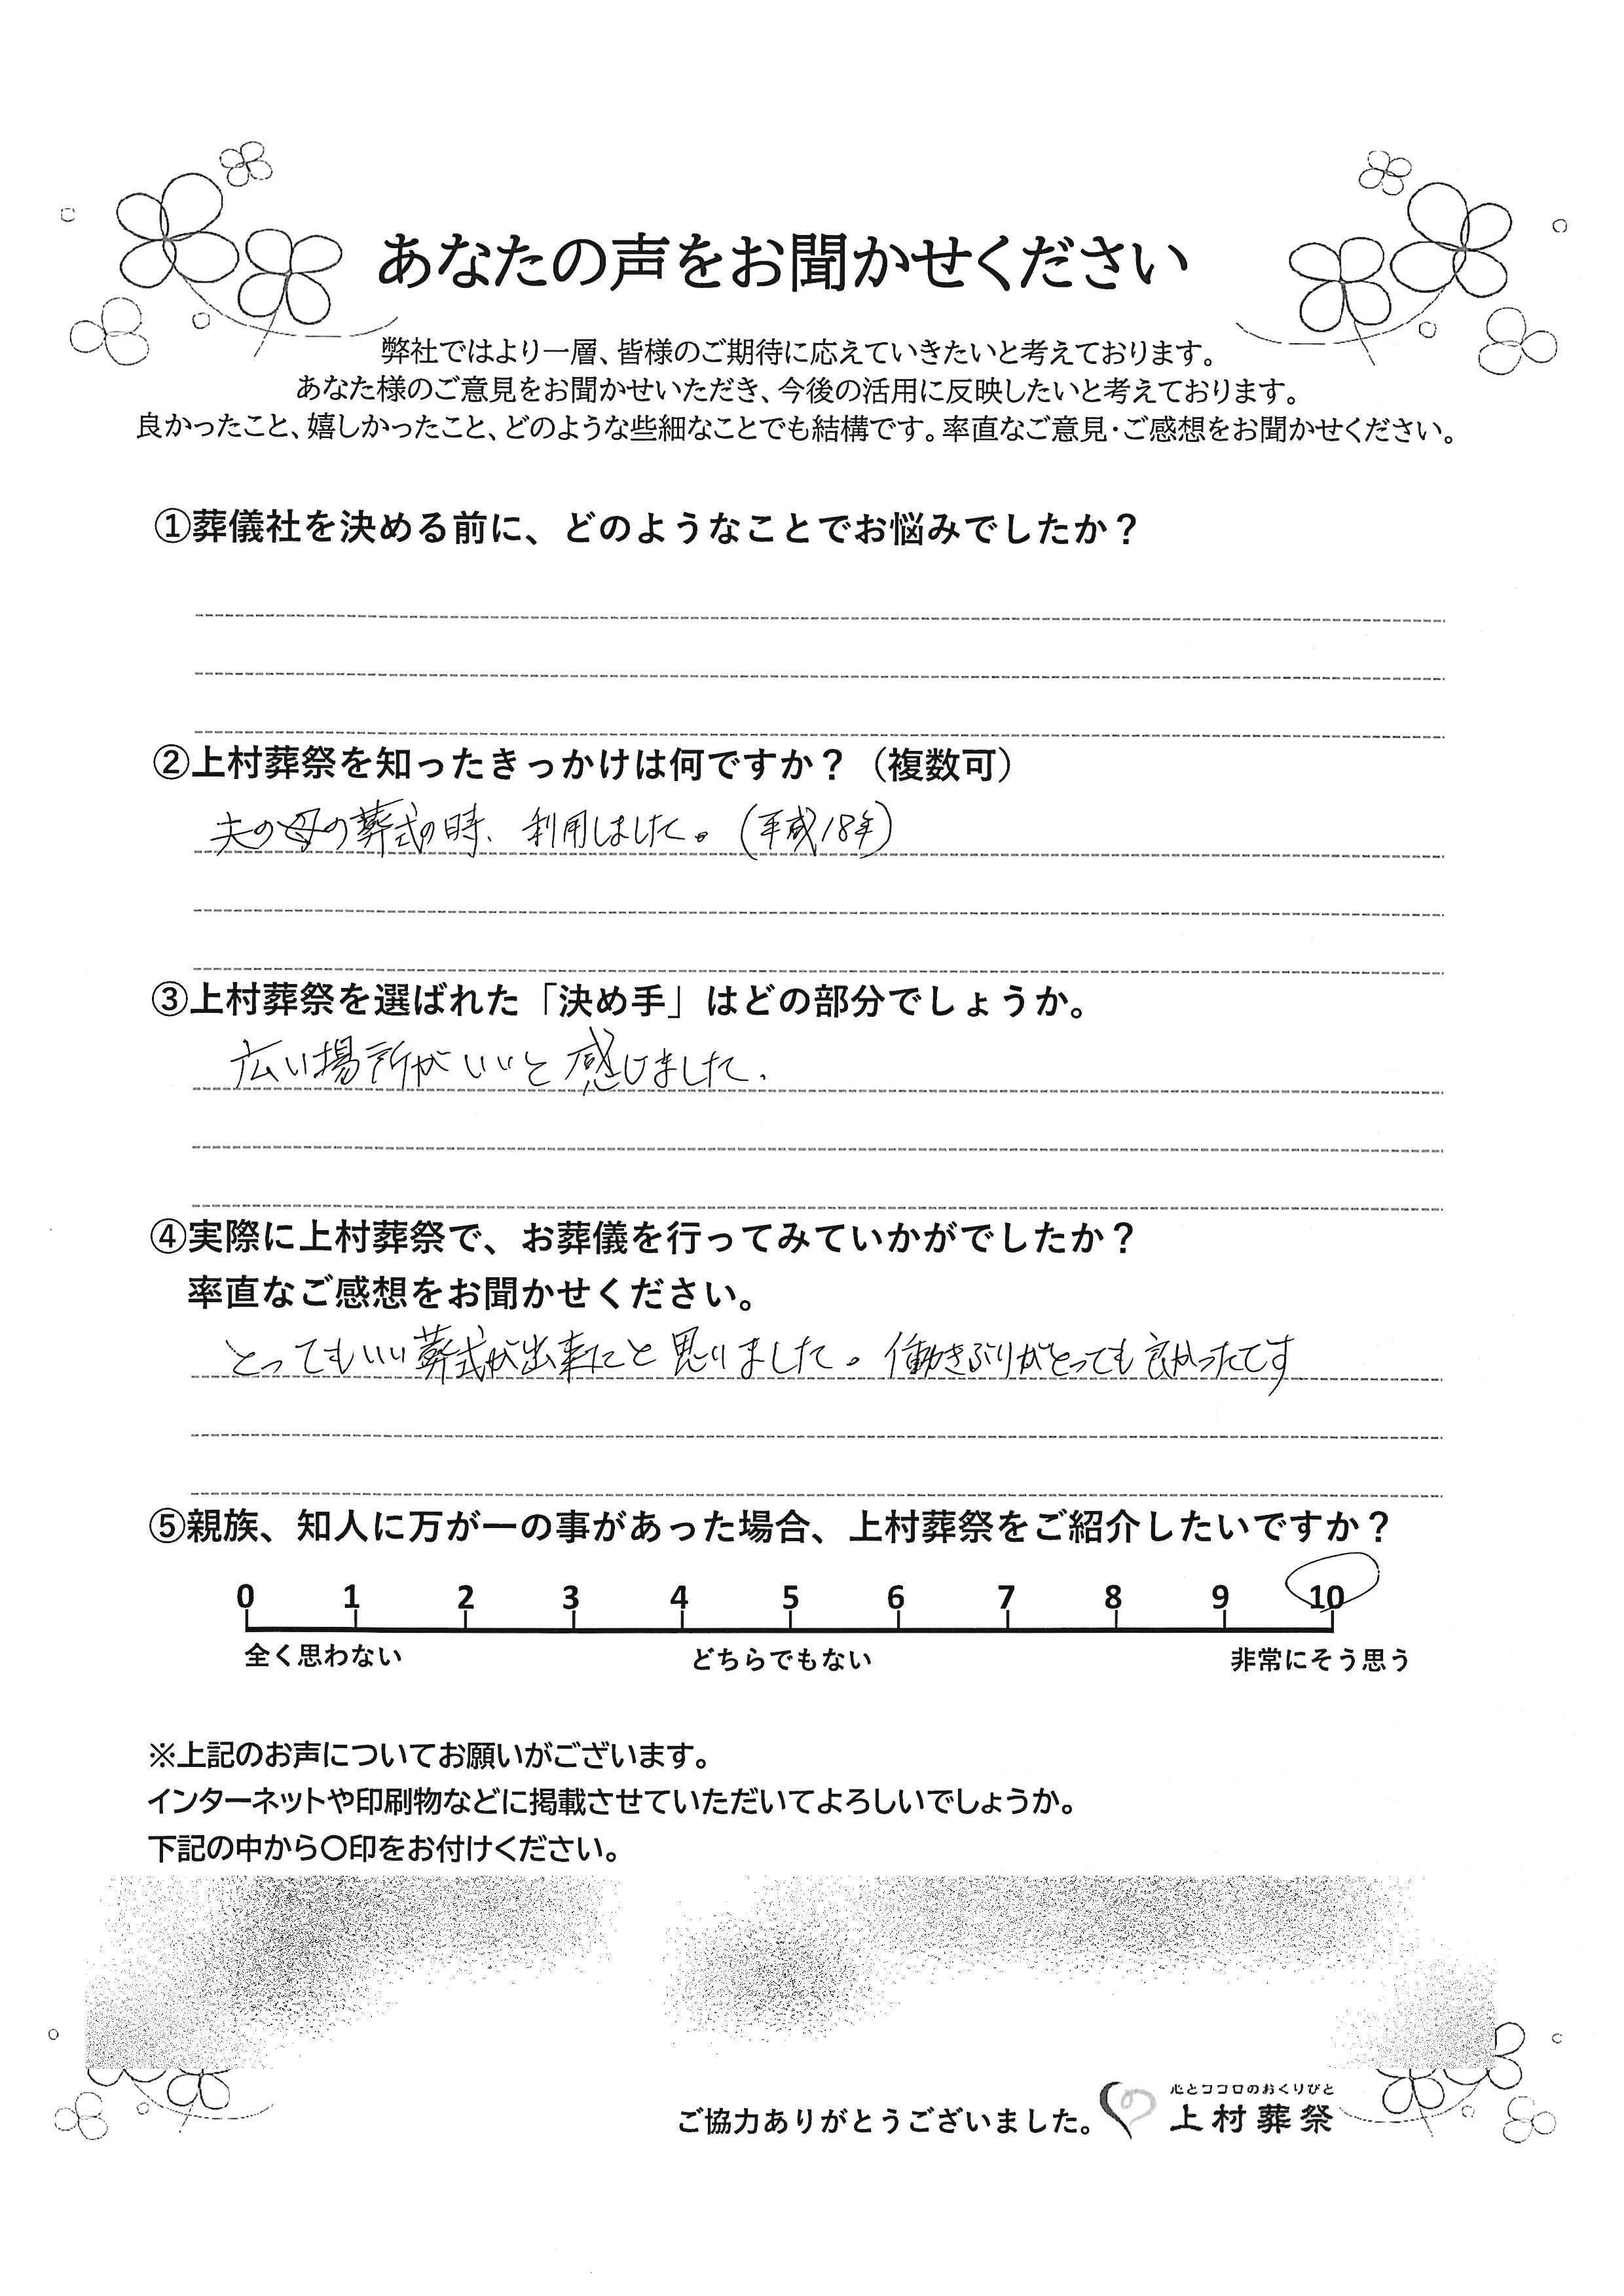 あなたの声をお聞かせください
弊社ではより一層、皆様のご期待に応えていきたいと考えております。
あなた様のご意見をお聞かせいただき、今後の活用に反映したいと考えております。
良かったこと、嬉しかったこと、どのような些細なことでも結構です。率直なご意見・ご感想をお聞かせください。
①葬儀社を決める前に、どのようなことでお悩みでしたか？
②上村葬祭を知ったきっかけは何ですか？（複数可）
夫の母の葬式の時、利用しました。(平成18年)
③上村葬祭を選ばれた「決め手」はどの部分でしょうか。
広い場所がいいと感じました.
④実際に上村葬祭で、お葬儀を行ってみていかがでしたか？
率直なご感想をお聞かせください。
とってもいい葬式が出来たと思いました。働きぶりがとっても良かったてす
⑤親族、知人に万が一の事があった場合、上村葬祭をご紹介したいですか？
0 1 2 3 4 5 6 7 8 9 10
全く思わない どちらでもない 非常にそう思う
※上記のお声についてお願いがございます。
インターネットや印刷物などに掲載させていただいてよろしいでしょうか。
下記の中から〇印をお付けください。
心とココロのおくりびと
ご協力ありがとうございました。 上村葬祭